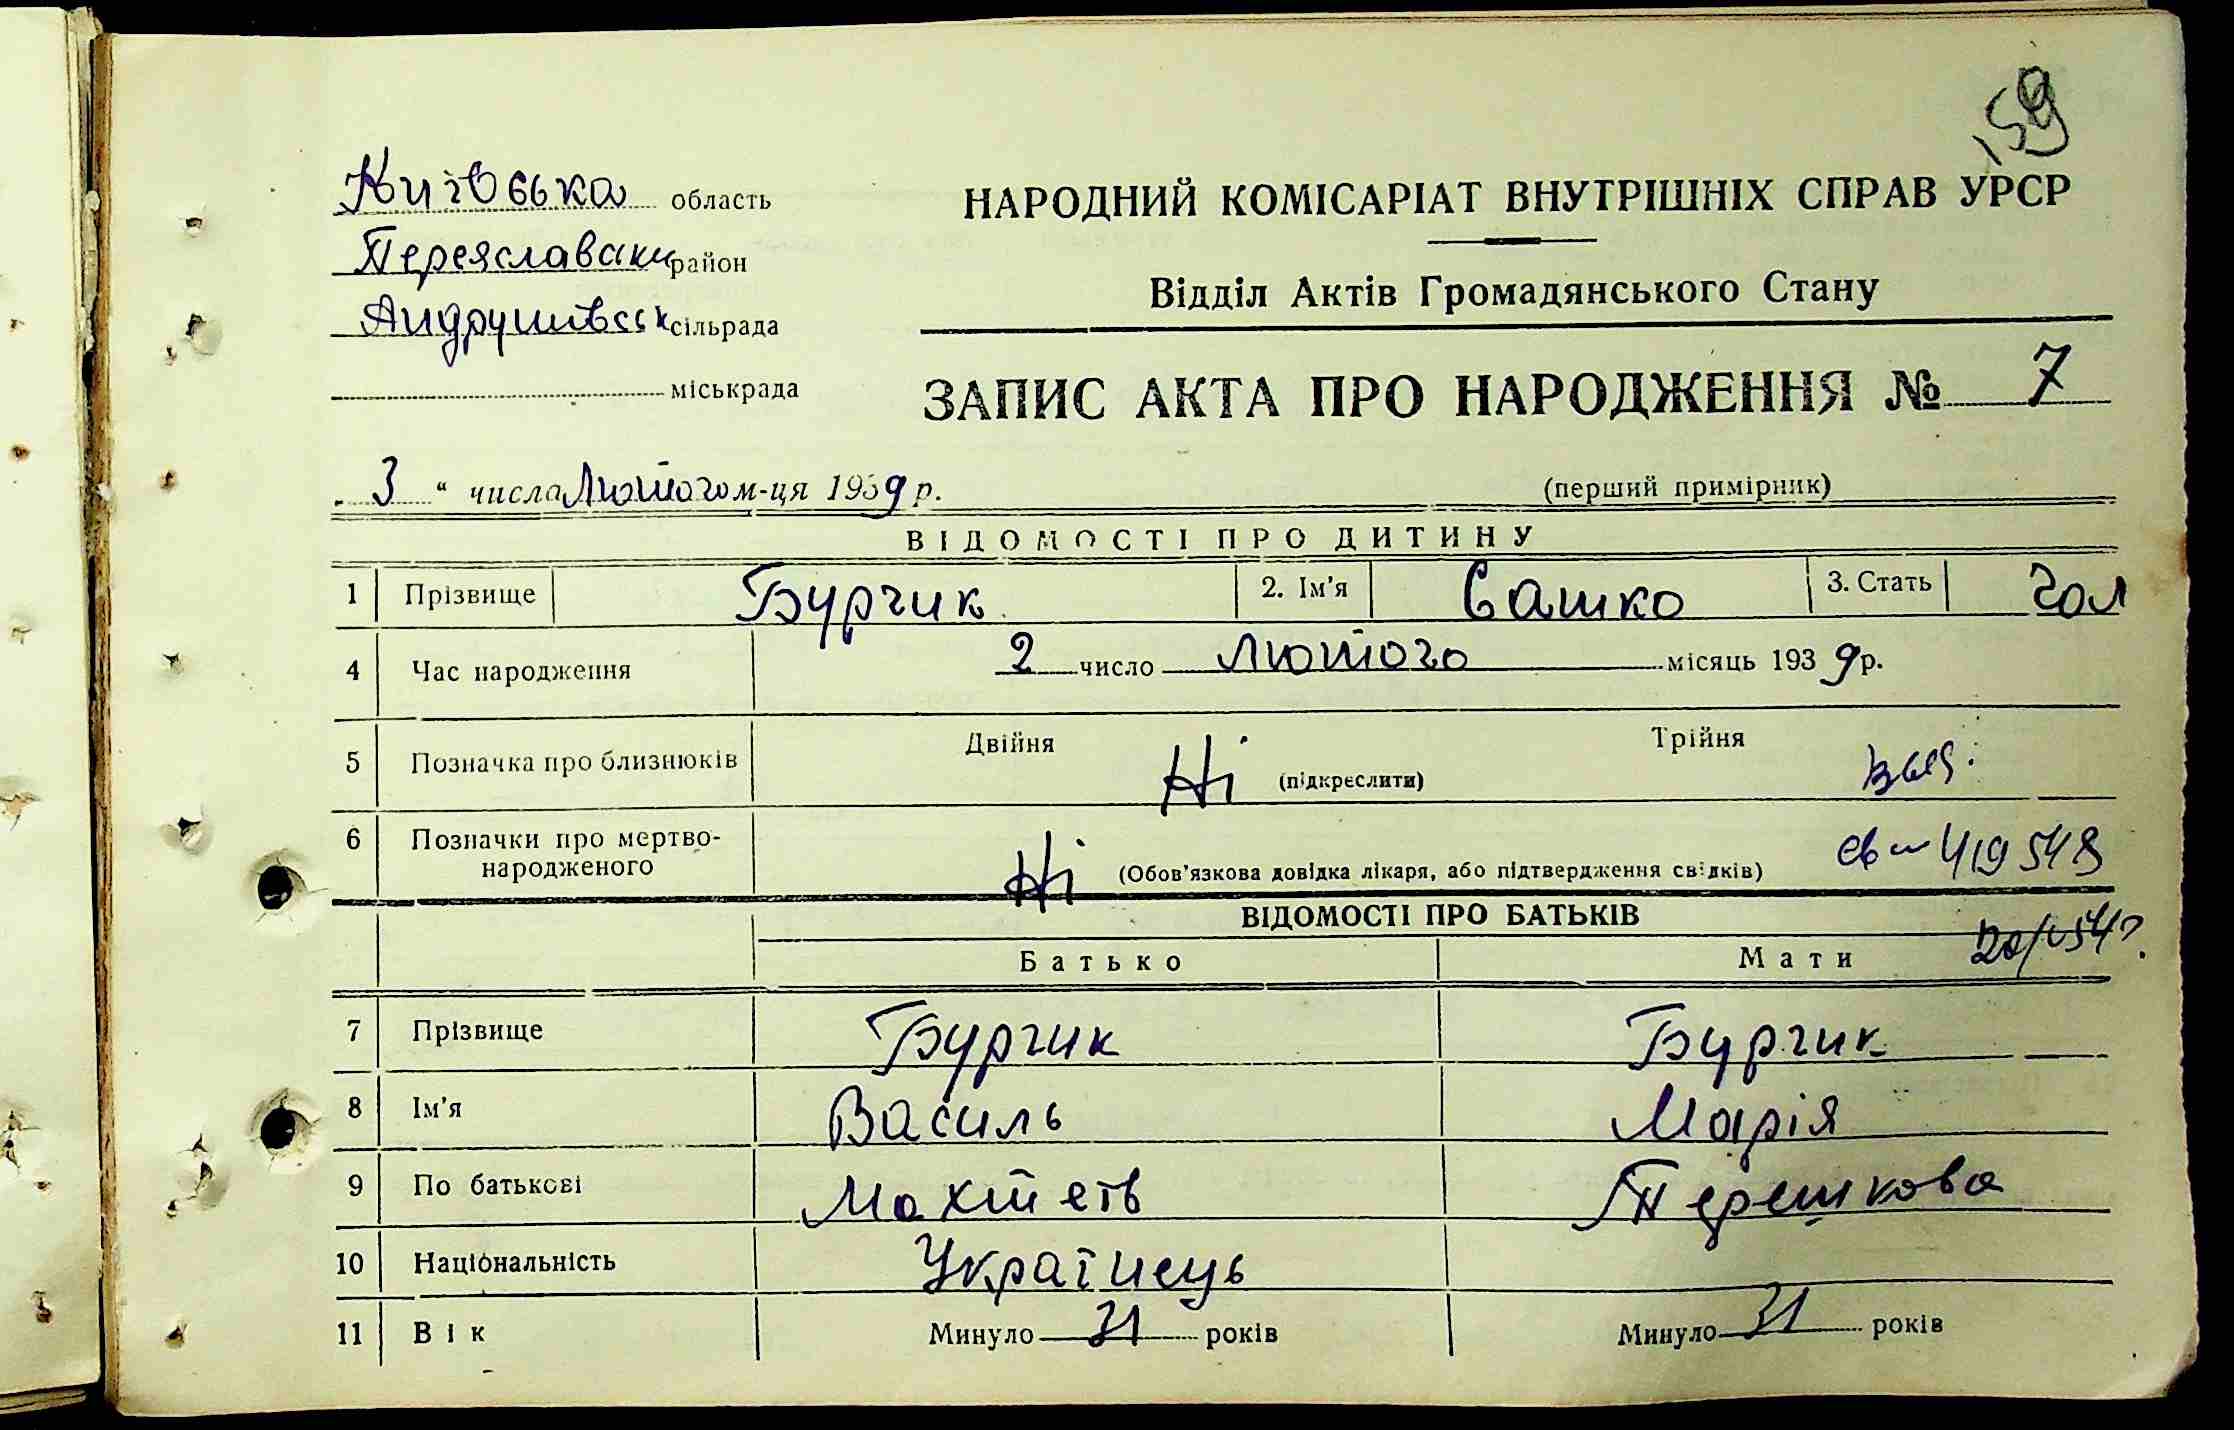 159
Київська область
НАРОДНИЙ КОМІСАРІАТ ВНУТРІШНІХ СПРАВ УРСР
Переяславськи район
Відділ Актів Громадянського Стану
Андрушівськ сільрада
міськрада
ЗАПИС АКТА ПРО НАРОДЖЕННЯ № 7
„ 3 “ числа Лютого м-ця 1939 р.
(перший примірник)
ВІДОМОСТІ ПРО ДИТИНУ
1 Прізвище Бурчик 2. Ім’я Сашко 3. Стать Чол
4 Час народження 2 число Лютого місяць 1939 р.
5 Позначка про близнюків Двійня Ні (підкреслити) Трійня
6 Позначки про мертво-
народженого Ні (Обов’язкова довідка лікаря, або підтвердження свідків)
ВІДОМОСТІ ПРО БАТЬКІВ
Батько Мати
7 Прізвище Бурчик Бурчик
8 Ім’я Василь Марія
9 По батькові
10 Національність Українець
11 Вік Минуло 31 років Минуло 31 років